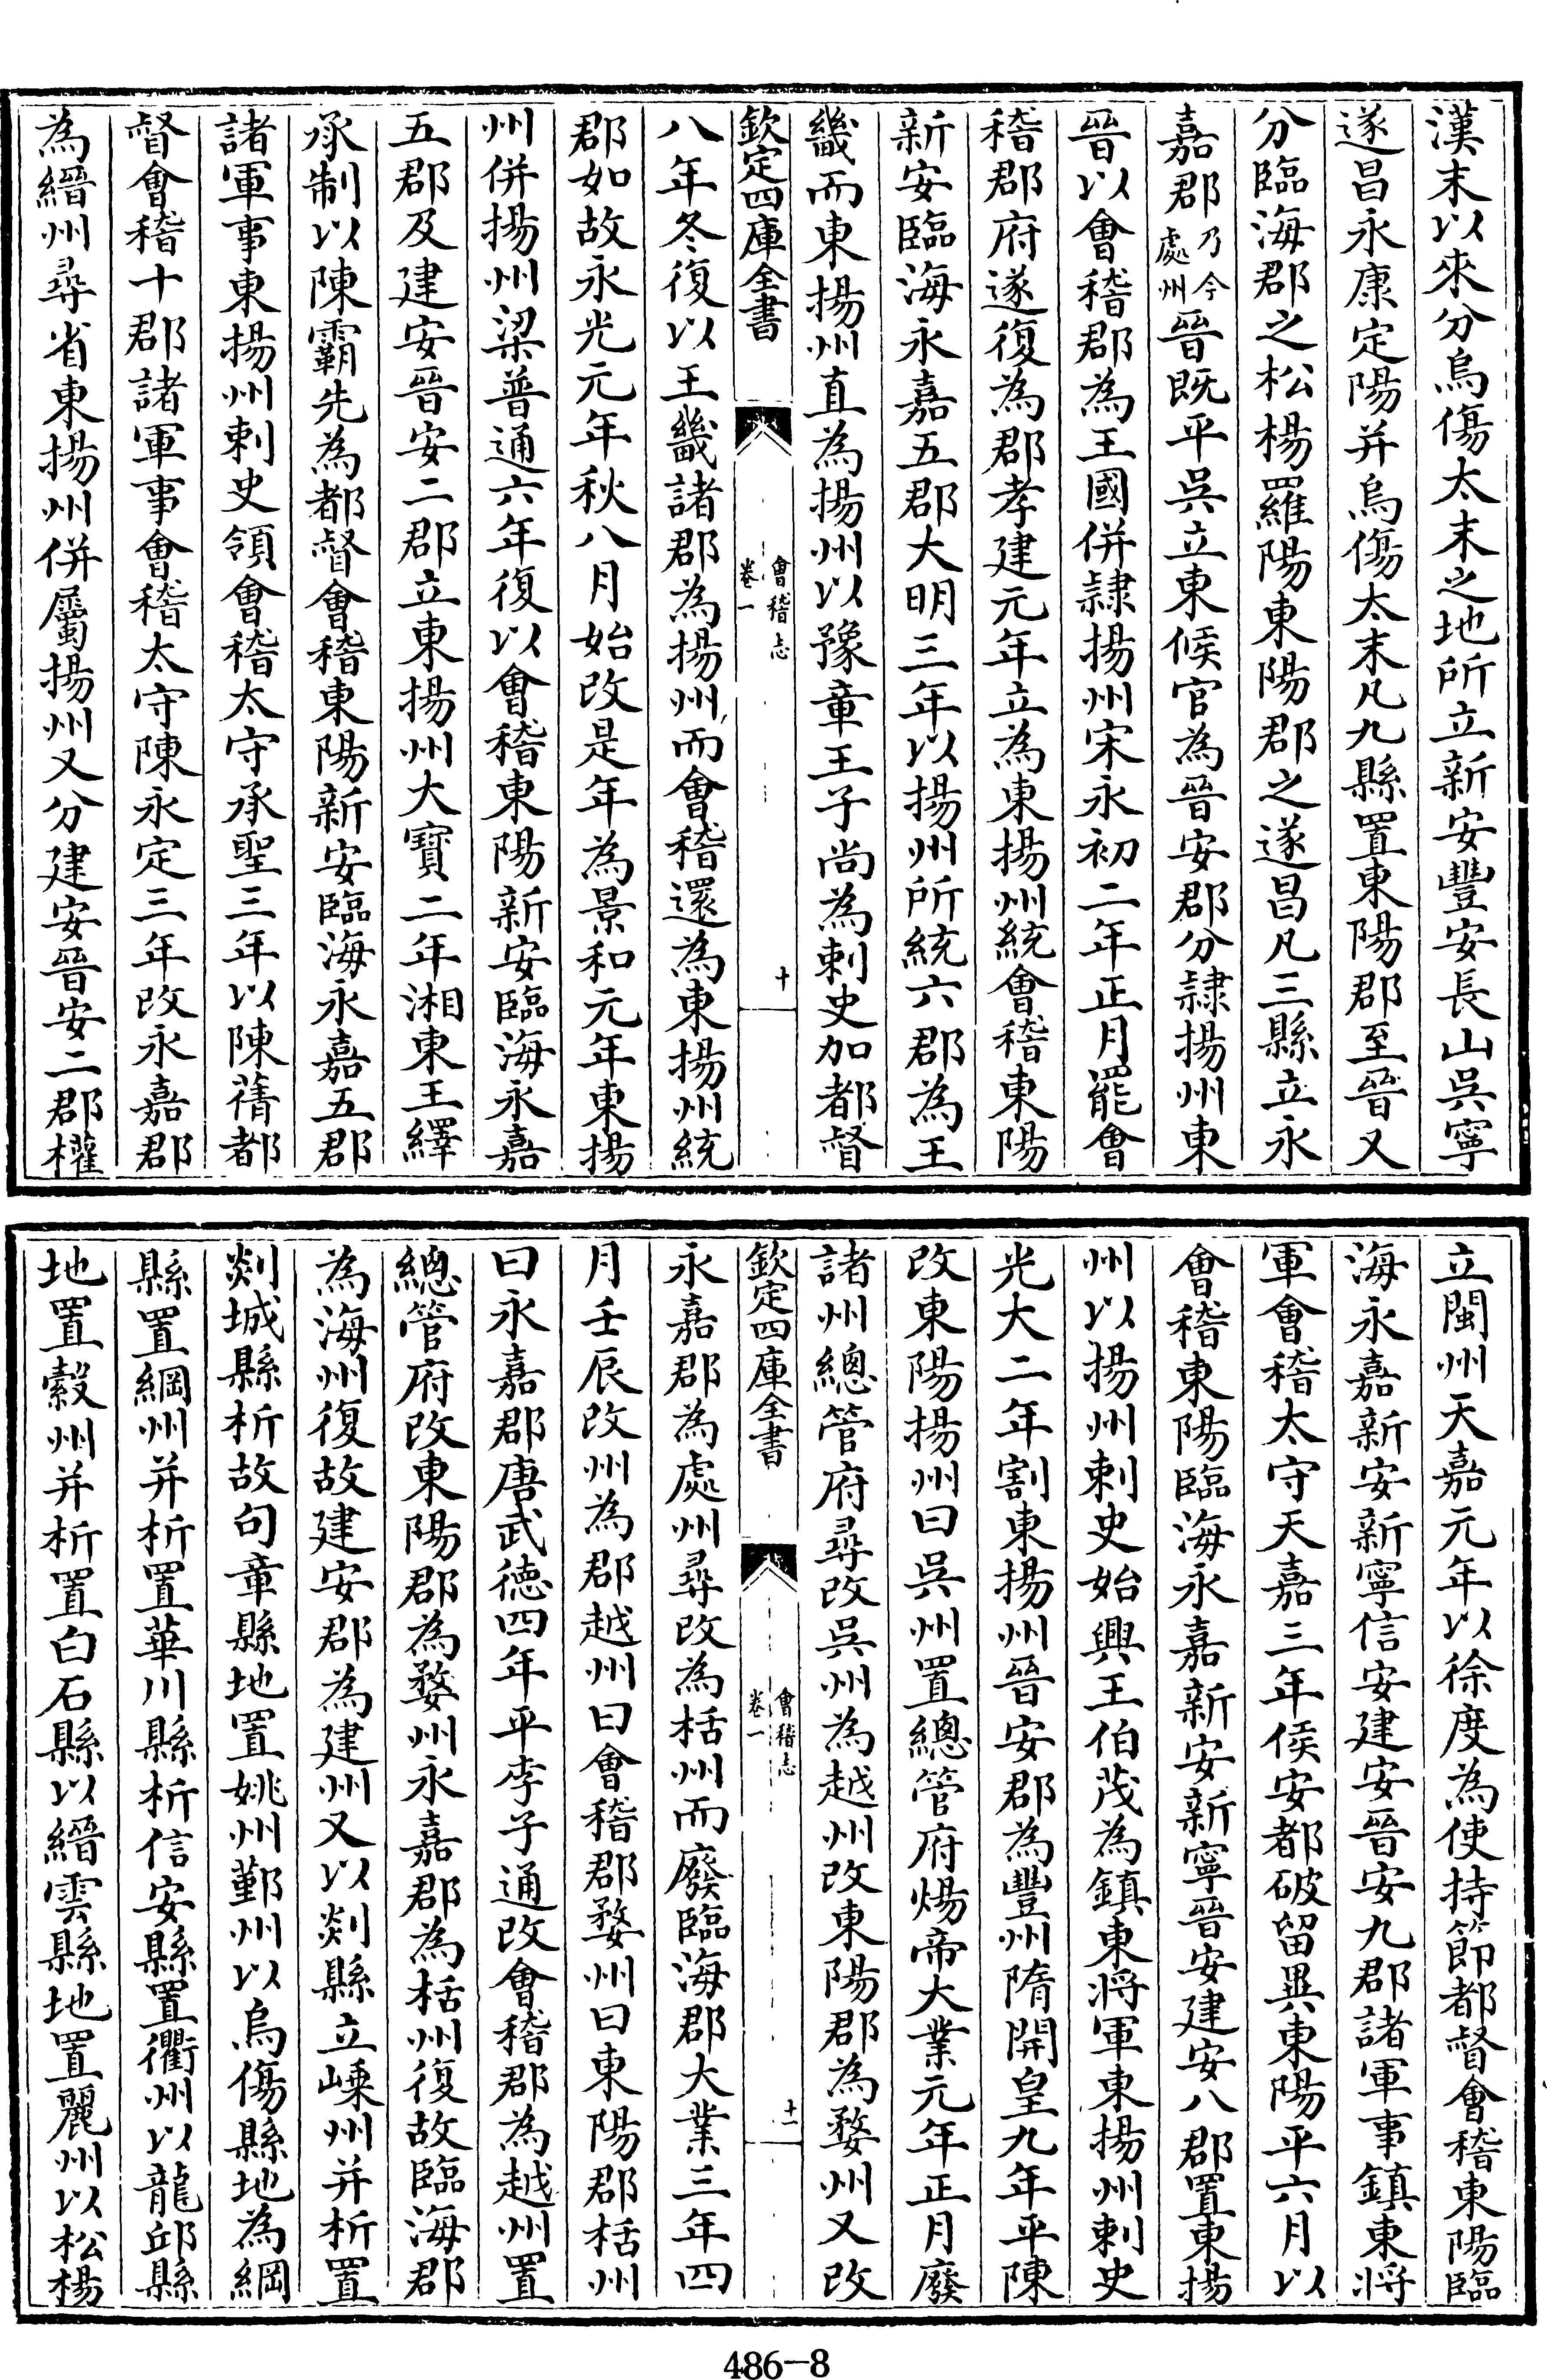 漢末以來分烏傷太末之地所立新安豐安長山吳寧
遂昌永康定陽并烏傷太末凡九縣置東陽郡至晉又
分臨海郡之松楊羅陽東陽郡之遂昌凡三縣立永
嘉郡乃今處州晉既平吳立東候官為晉安郡分隷揚州東
晉以會稽郡為王國併隷揚州宋永初二年正月罷會
稽郡府遂復為郡孝建元年立為東揚州統會稽東陽
新安臨海永嘉五郡大明三年以揚州所統六郡為王
畿而東揚州直為揚州以豫章王子尚為刺史加都督
欽定四庫全書
會稽志
卷一
十
八年冬復以王畿諸郡為揚州而會稽還為東揚州統
郡如故永光元年秋八月始改是年為景和元年東揚
州併揚州梁普通六年復以會稽東陽新安臨海永嘉
五郡及建安晉安二郡立東揚州大寶二年湘東王繹
承制以陳霸先為都督會稽東陽新安臨海永嘉五郡
諸軍事東揚州刺史領會稽太守承聖三年以陳蒨都
督會稽十郡諸軍事會稽太守陳永定三年改永嘉郡
為縉州尋省東揚州併屬揚州又分建安晉安二郡權
立閩州天嘉元年以徐度為使持節都督會稽東陽臨
海永嘉新安新寧信安建安晉安九郡諸軍事鎮東將
軍會稽太守天嘉三年侯安都破留異東陽平六月以
會稽東陽臨海永嘉新安新寧晉安建安八郡置東揚
州以揚州刺史始興王伯茂為鎮東將軍東揚州刺史
光大二年割東揚州晉安郡為豐州隋開皇九年平陳
改東陽揚州曰吳州置總管府煬帝大業元年正月廢
諸州總管府尋改吳州為越州改東陽郡為婺州又改
欽定四庫全書
會稽志
卷一
十一
永嘉郡為處州尋改為栝州而廢臨海郡大業三年四
月壬辰改州為郡越州曰會稽郡婺州曰東陽郡栝州
曰永嘉郡唐武德四年平李子通改會稽郡為越州置
總管府改東陽郡為婺州永嘉郡為栝州復故臨海郡
為海州復故建安郡為建州又以剡縣立嵊州并析置
剡城縣析故句章縣地置姚州鄞州以烏傷縣地為綢
縣置綢州并析置華川縣析信安縣置衢州以龍邱縣
地置縠州并析置白石縣以縉雲縣地置麗州以松楊
486-8